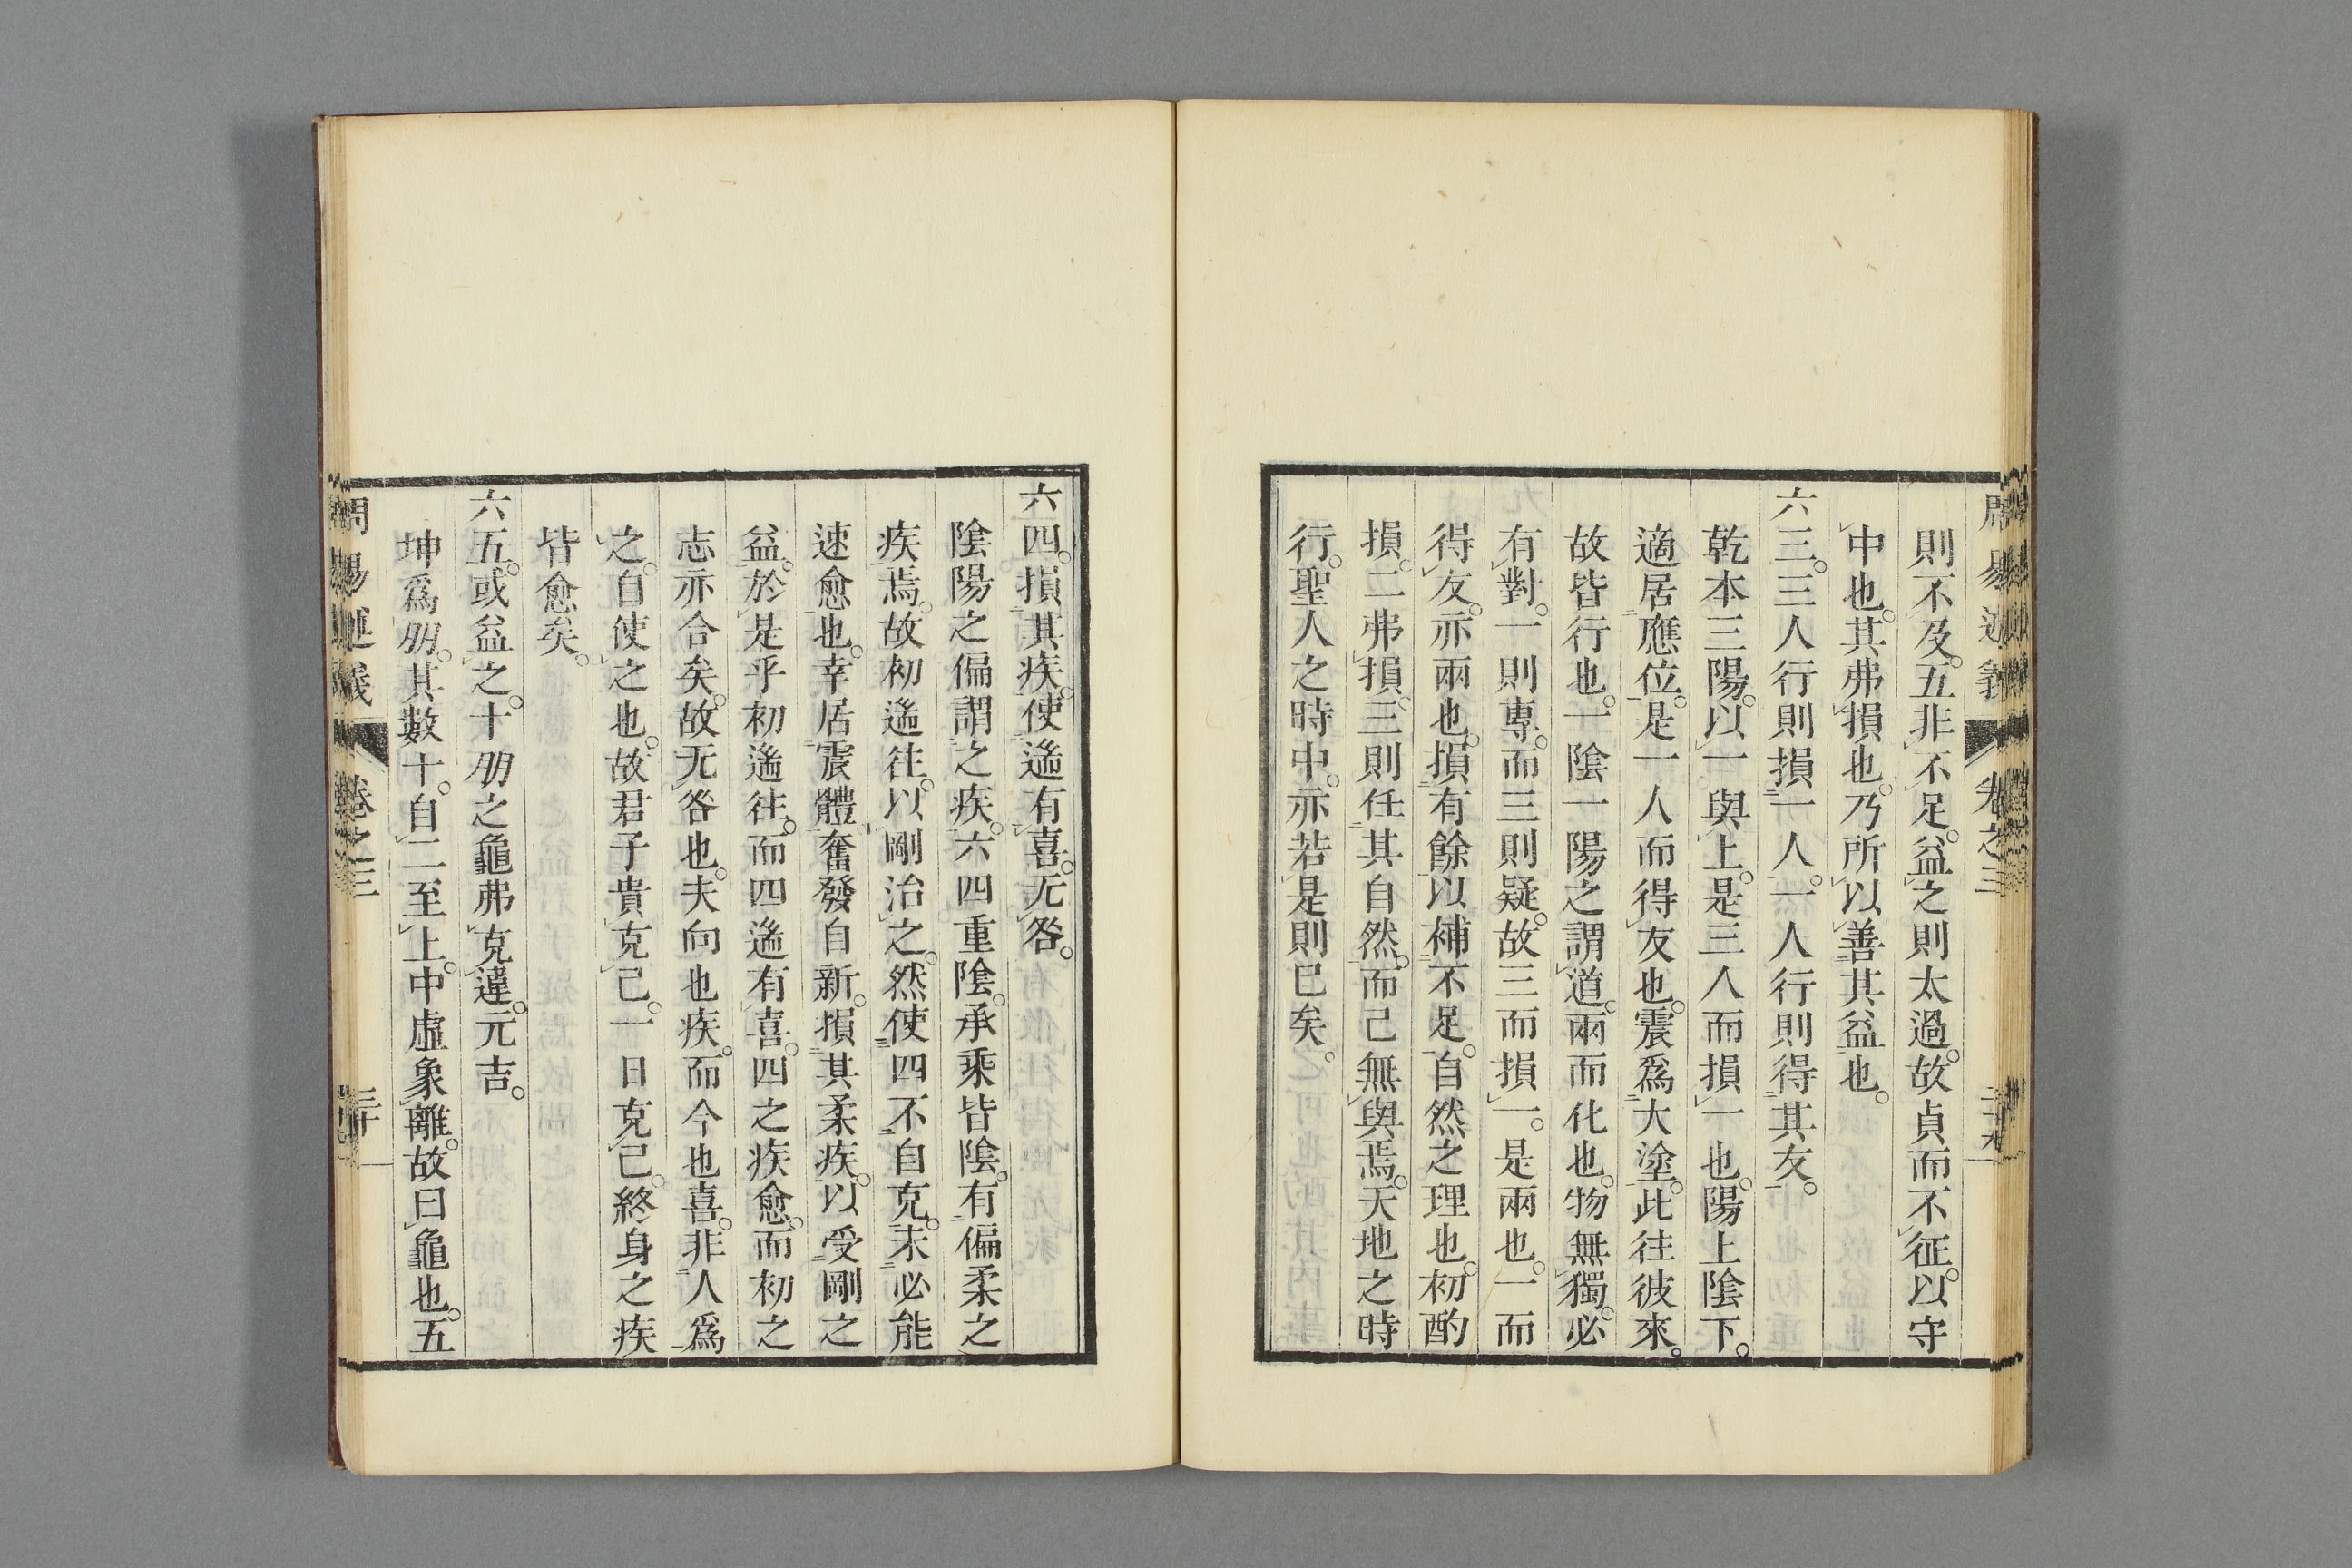 則不及。五非不足。益之則太過。故貞而不征。以守
中也。其弗損也。乃所以善其益也。
六三。三人行則損一人。一人行則得其友。
乾本三陽。以一與上。是三人而損一也。陽上陰下。
適居應位。是一人而得友也。震爲大塗。此往彼來。
故皆行也。一陰一陽之謂道。兩而化也。物無獨。必
有對。一則專。而三則疑。故三而損一。是兩也。一而
得友。亦兩也。損有餘以補不足。自然之理也。初酌
損。二弗損。三則任其自然。而己無與焉。天地之時
行。聖人之時中。亦若是則已矣。
六四。損其疾。使遄有喜。无咎。
陰陽之偏謂之疾。六四重陰。承乘皆陰。有偏柔之
疾焉。故初遄往。以剛治之。然使四不自克。未必能
速愈也。幸居震體奮發自新。損其柔疾。以受剛之
益。於是乎初遄往。而四遄有喜。四之疾愈。而初之
志亦合矣。故无咎也。夫向也疾。而今也喜。非人爲
之。自使之也。故君子貴克己。一日克己。終身之疾
皆愈矣。
六五。或益之。十朋之龜弗克違。元吉。
坤爲朋。其數十。自二至上。中虛象離。故曰龜也。五
周易述義 卷之三 三十